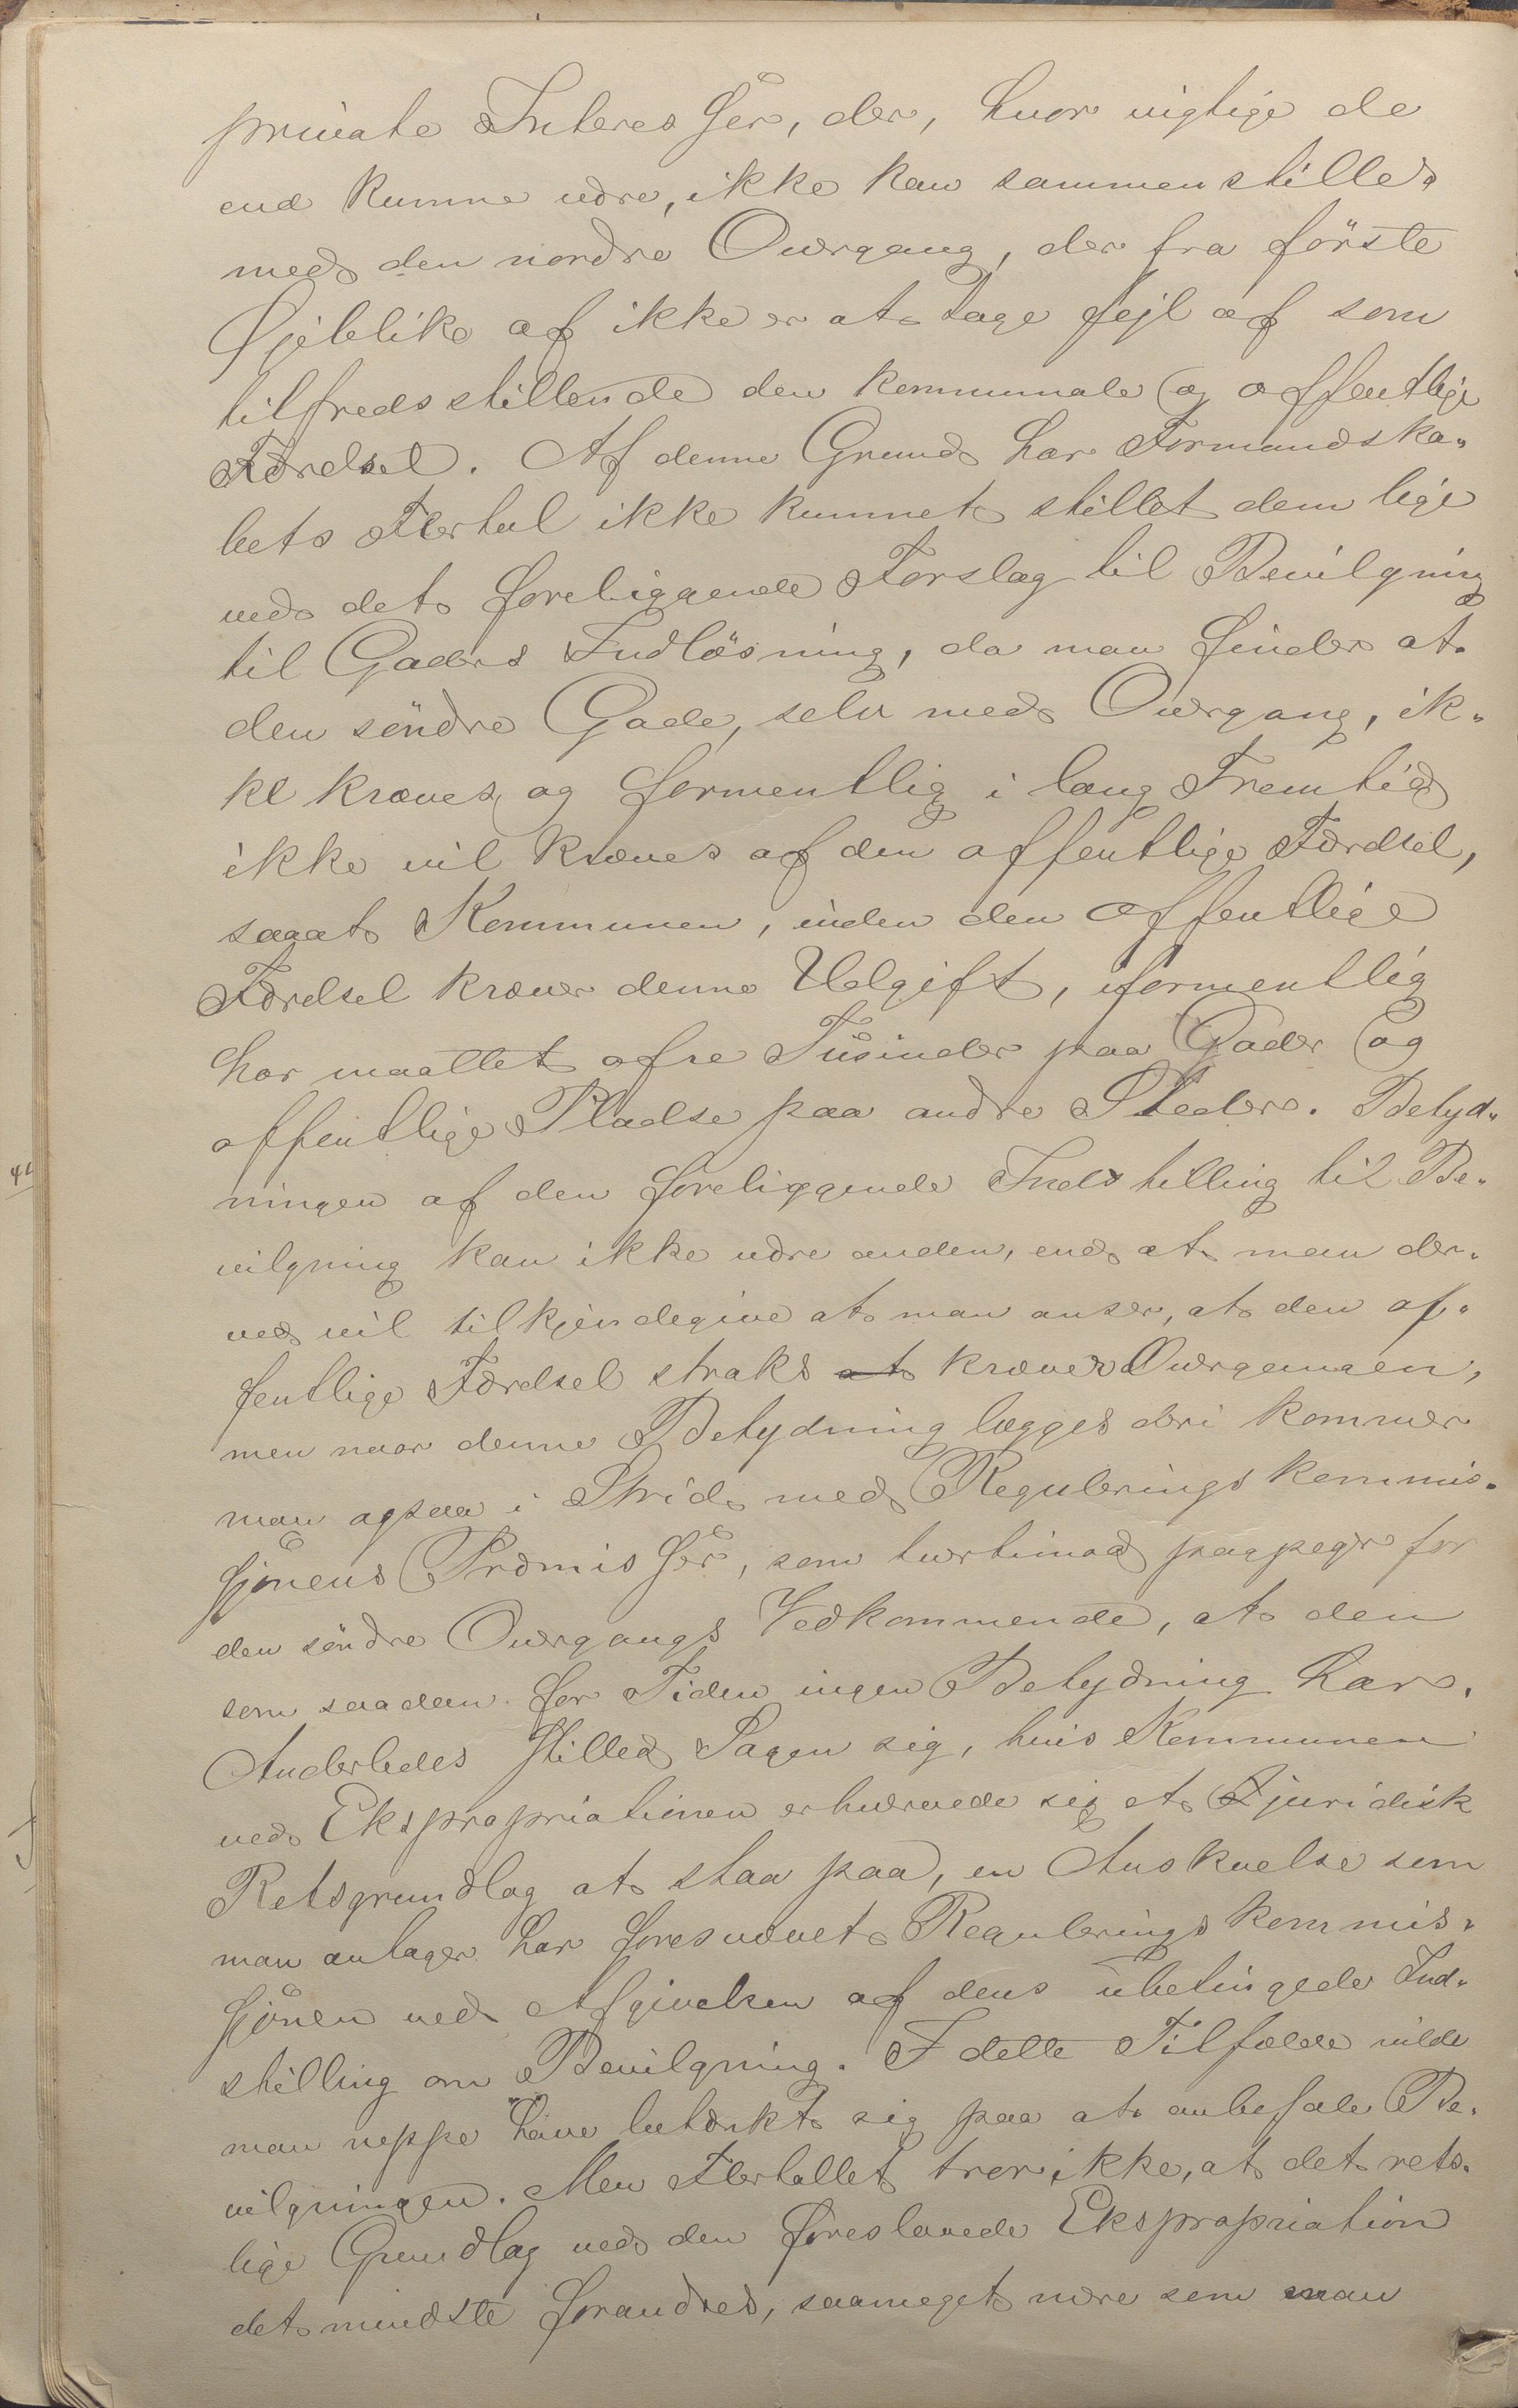 private Interesser, der, hvor vigtige de
end kunne være, ikke kan sammenstilles
med den nordre Overgang, der fra første
Øjeblik af ikke er at tage fejl af som
tilfredsstillende den kommunale og offentlige
Færdsel. Af denne Grund har Formandska-
bets Flertal ikke kunnet stillet dem lige
ved det foreliggende Forslag til Bevilgning
til Gaders Indløsning, da man finder at
den søndre Gade, selv med Overgang, ik-
ke kræves og formentlig i lang Fremtid
ikke vil kræves af den offentlige Færdsel,
saaat Kommunen, inden den offentlige
Færdsel kræver denne Udgift, formentlig
har maattet ofre Tusinder paa Gader og
offentlige Pladse paa andre Steder. Betyd-
ningen af den foreliggende Indstilling til Be-
vilgning kan ikke være anden, end at man der-
ved vil tilkjendegive at man anser, at den of-
fentlige Færdsel straks at kræver Overgangen,
men naar denne Betydning lægges deri kommer
man ogsaa i Strid med Reguleringskommis-
sjonens Præmisser, som tvertimod paapeger for
den søndre Overgangs Vedkommende, at den
som saadan for Tiden ingen Betydning har.
Anderledes stilled Sagen sig, hvis Kommunen
ved Ekspropriationen erhvervede sig et juridisk
Retsgrundlag at staa paa, en Anskuelse som
man antager har foresvævet Reguleringskommis-
sjonen ved Afgivelsen af dens ubetingede Ind-
stilling om Bevilgning. I dette Tilfælde vilde
man neppe have betænkt sig paa at anbefale Be-
vilgningen. Men Flertallet tror ikke, at det rets-
lige Grundlag ved den foreslaaede Ekspropriation
det mindste forandres, saameget mere som man